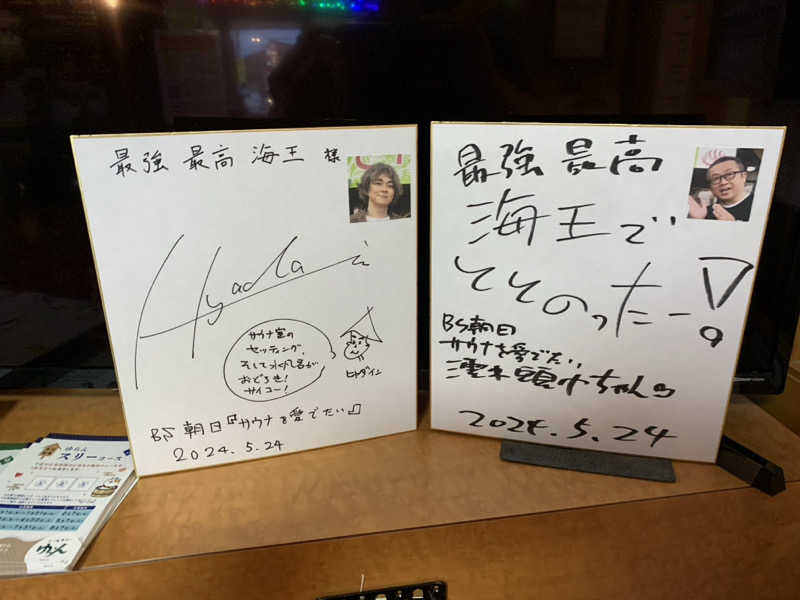 最強 最高 海王 様
Hyadain
サウナ室の
セッティング、
そして水風呂が
おどろき!
サイコー!
ヒャダイン
BS朝日『サウナを愛でたい』
2024.5.24
最強 最高
海王で
ととのったー!
BS朝日
サウナを愛でたい
濡れ頭巾ちゃん
2024.5.24
スリーコース